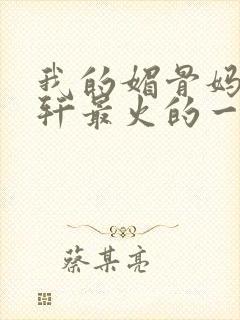 我的媚骨妈
轩最火的一
蔡某亮